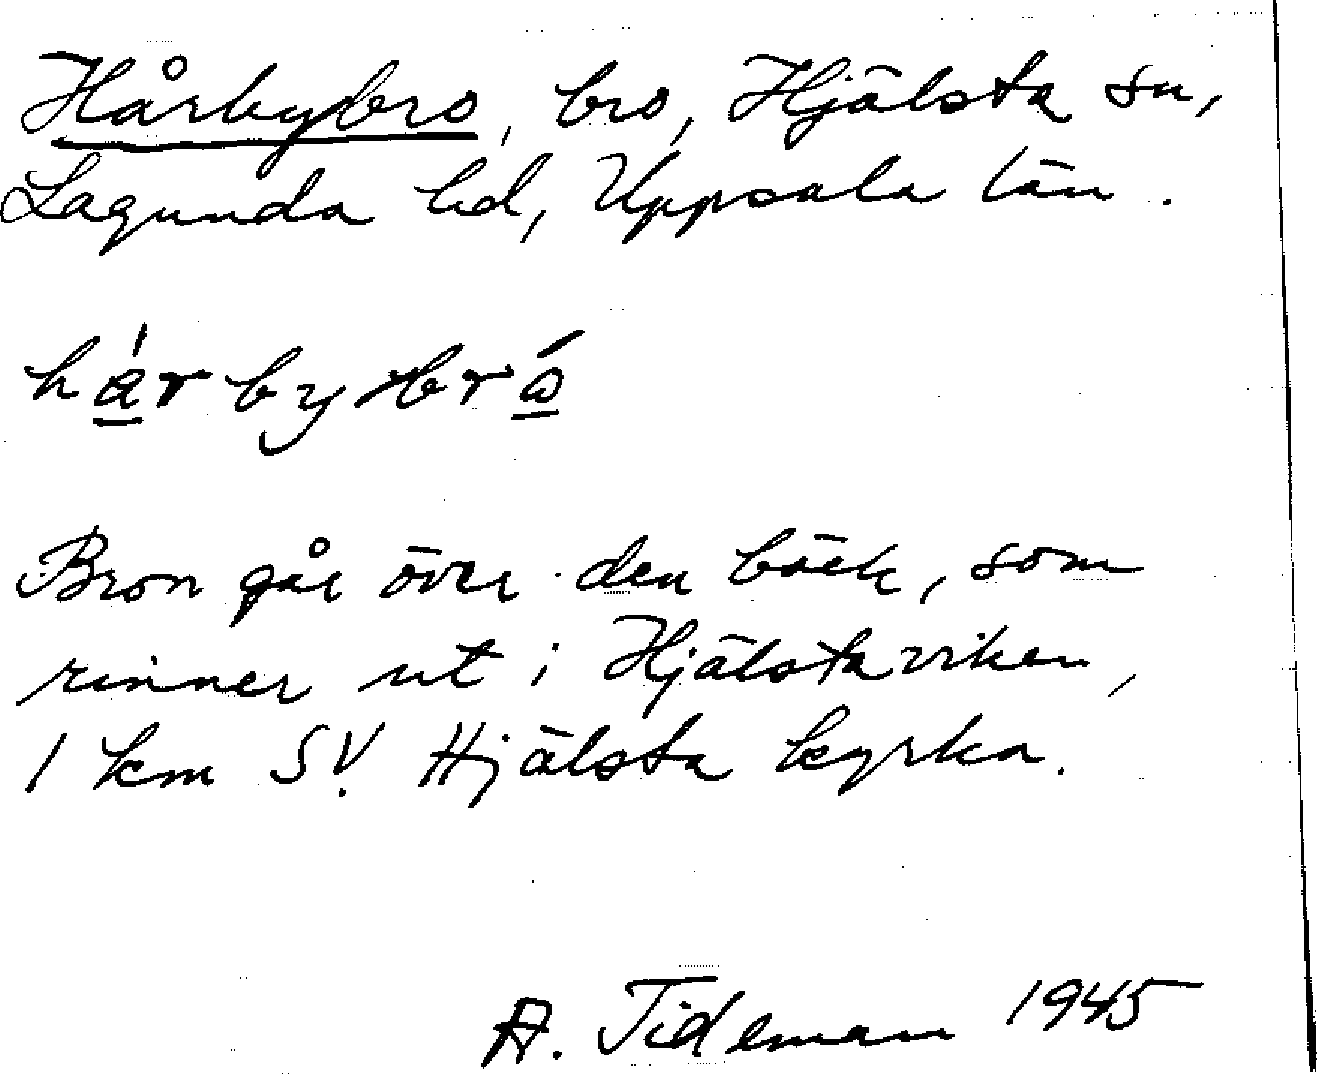 Hårbybro, bro, Hjälsta sn,
Lagunda hd, Uppsala län.
hárbybró
Bron går över den bäck, som
rinner ut i Hjälstaviken,
1 km SV. Hjälsta kyrka.
A. Tideman 1945